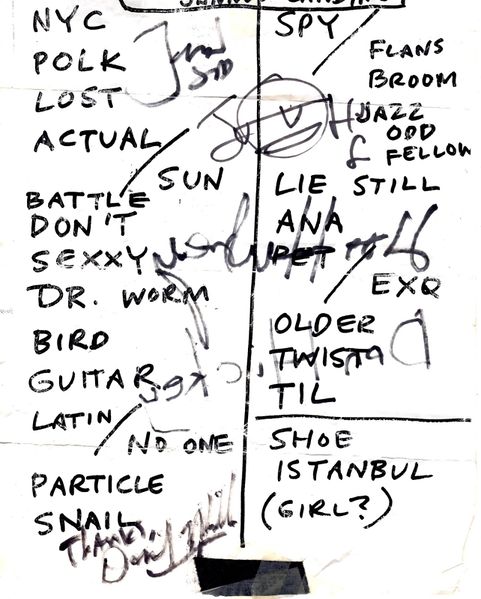 NYC
POLK
LOST
ACTUAL
SUN
BATTLE
DON'T
SEXXY
DR. WORM
BIRD
GUITAR
LATIN
NO ONE
PARTICLE
SNAIL
THANKS,
SPY
FLANS
BROOM
JAZZ
ODD
FELLOW
LIE STILL
ANA
PET
EXQ
OLDER
TWIST
TIL
SHOE
ISTANBUL
(GIRL?)